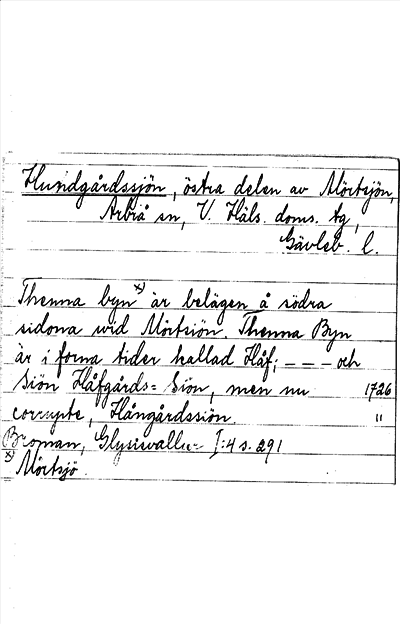 Hundgårdssjön, östra delen av Mörtsjön,
Arbrå sn, V. Häls. doms. tg,
Gävleb. l.
Thenna byn x) är belägen å södra
sidona wid Mörtsiön. Thenna Byn
är i forna tider kallad Håf; - - - och
Siön Håfgårds= Siön, men nu 1726
corrupte, Hångårdssiön. "
Broman, Glysisvallur I:4 s. 291
x) Mörtsjö.